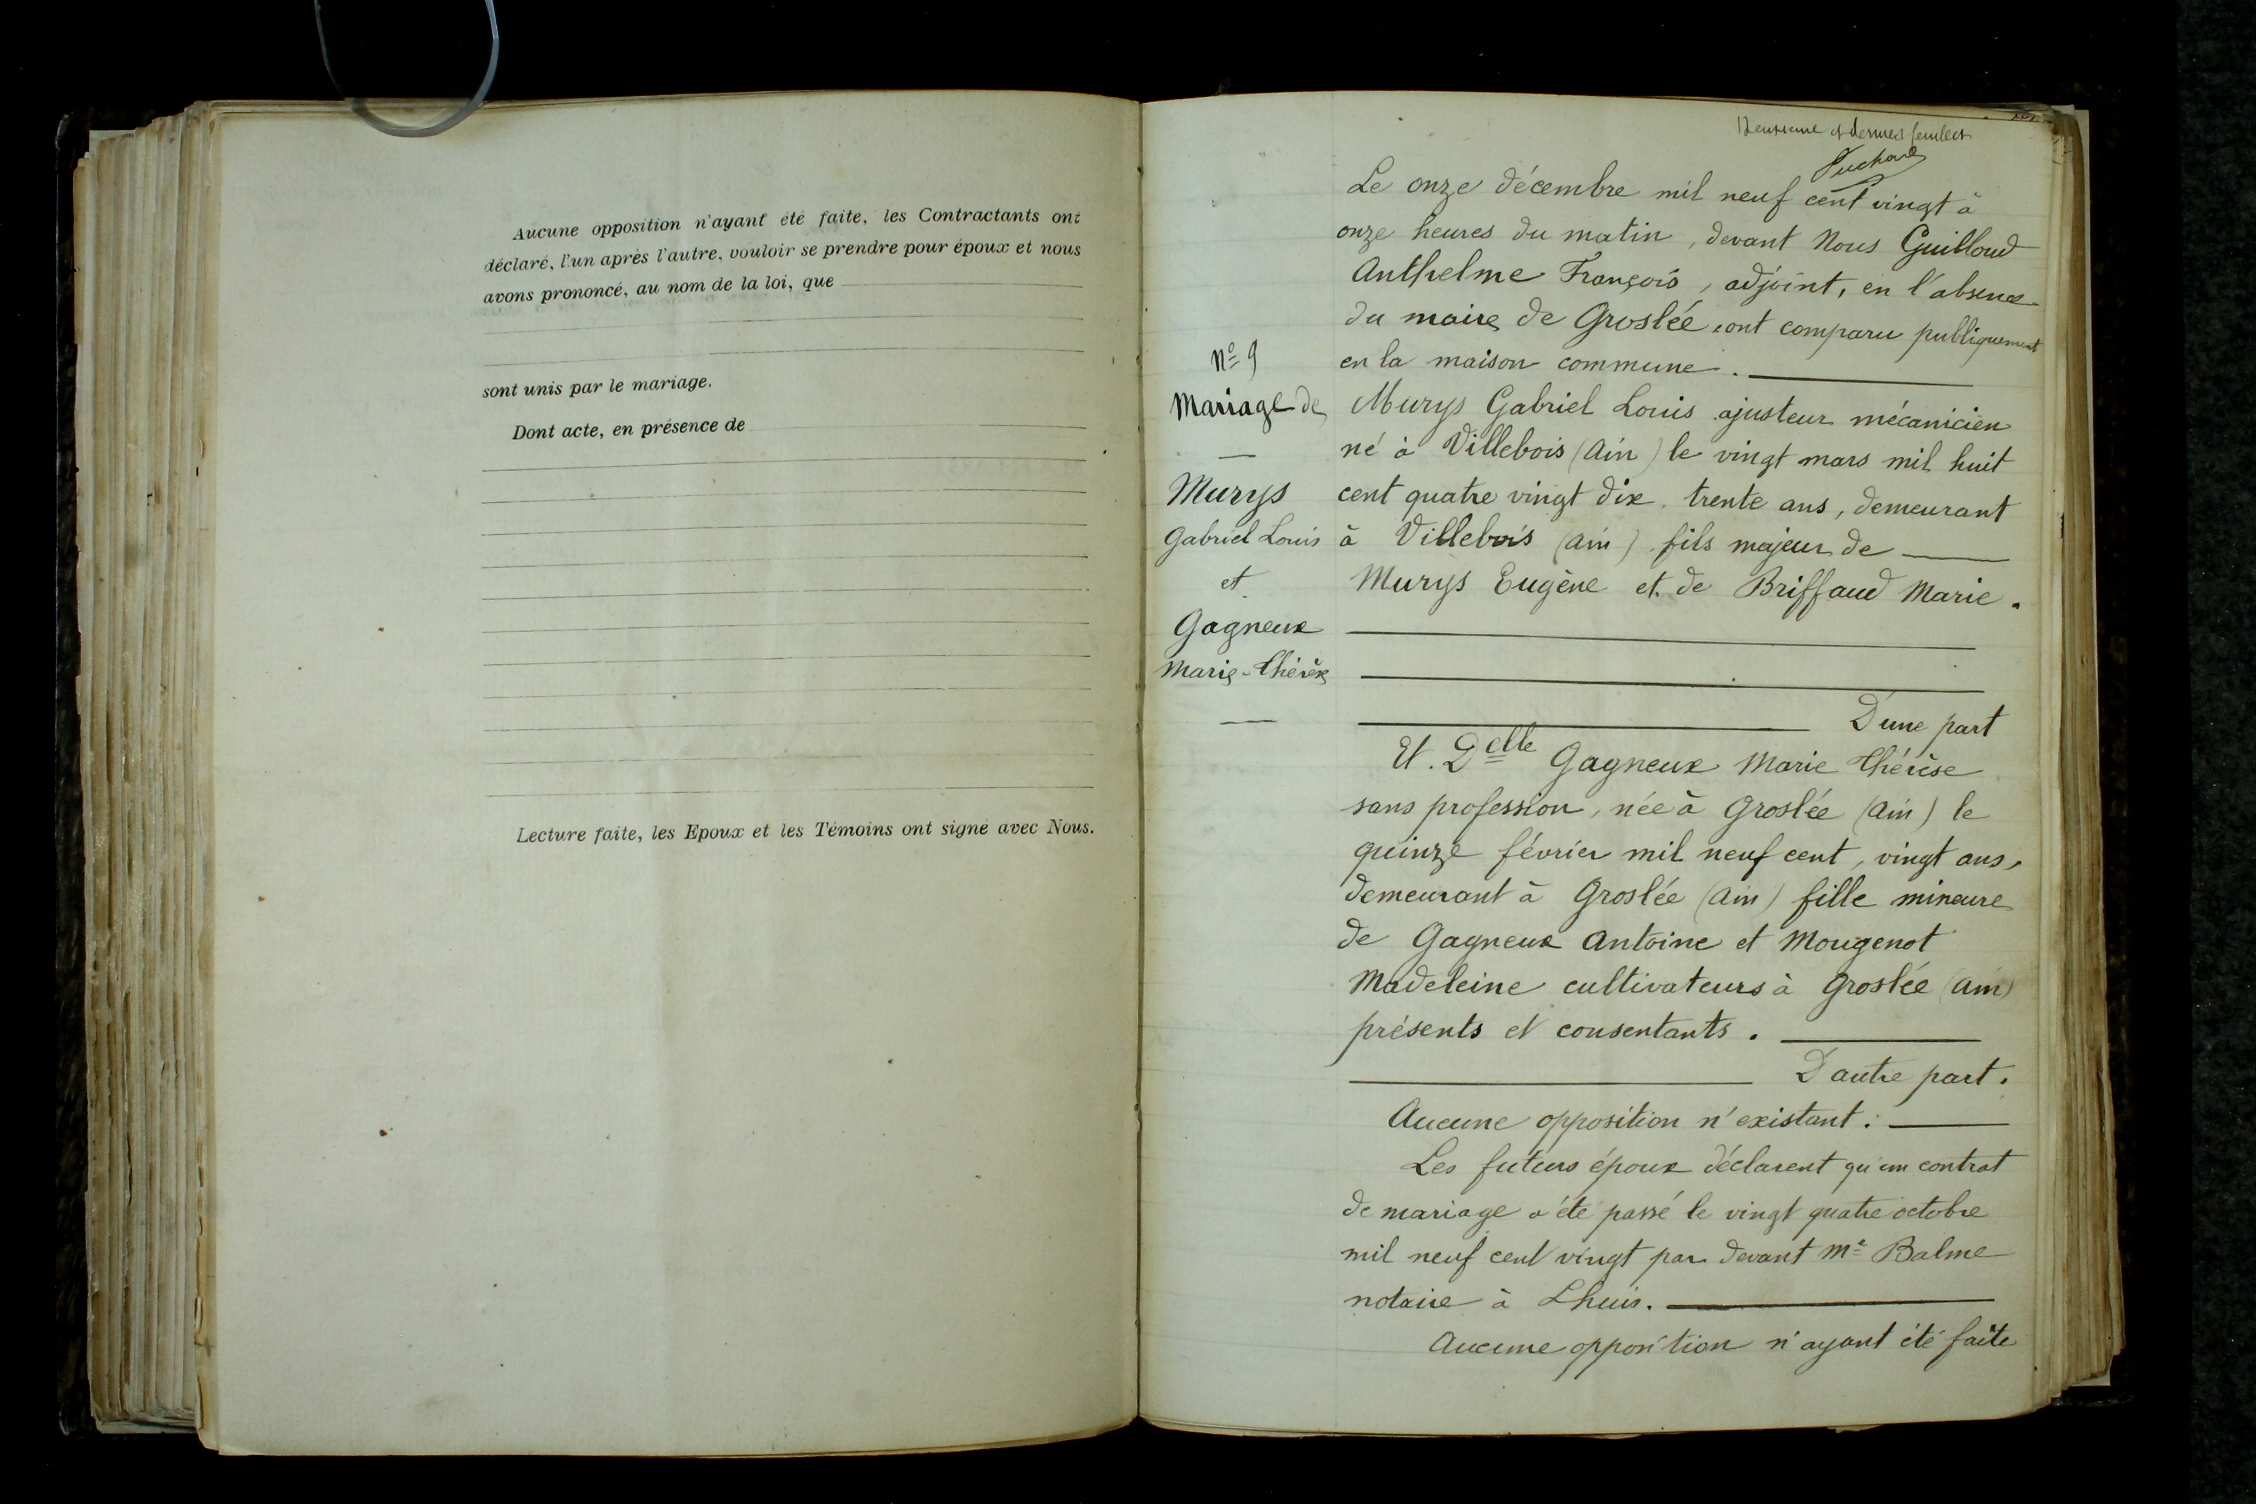 Aucune opposition n'ayant été faite, les Contractants ont
déclaré, l'un après l'autre, vouloir se prendre pour époux et nous
avons prononcé, au nom de la loi, que
sont unis par le mariage.
Dont acte, en présence de
Lecture faite, les Epoux et les Témoins ont signé avec Nous.
et dernier
Le onze décembre mil neuf cent vingt à
onze heures du matin, devant Nous Guilloud
Anthelme François, adjoint, en l'absence
du maire de Groslée, ont comparu publiquement
en la maison commune.
Nº 9
Mariage de
Murys
Gabriel Louis
et
Gagneux
Marie-Thérèse
Murys Gabriel Louis ajusteur mécanicien
né à Villebois (Ain) le vingt mars mil huit
cent quatre vingt dix, trente ans, demeurant
à Villebois (Ain) fils majeur de
Murys Eugène et de Briffaud Marie.
D'une part
Et. Delle Gagneux Marie Thérèse
sans profession, née à Groslée (Ain) le
quinze février mil neuf cent, vingt ans,
demeurant à Groslée (Ain) fille mineure
de Gagneux Antoine et Mougenot
Madeleine cultivateurs à Groslée (Ain)
présents et consentants.
D'autre part.
Aucune opposition n'existant:
Les futurs époux déclarent qu'un contrat
de mariage a été passé le vingt quatre octobre
mil neuf cent vingt par devant Me Balme
notaire à Lhuis.
Aucune opposition n'ayant été faite